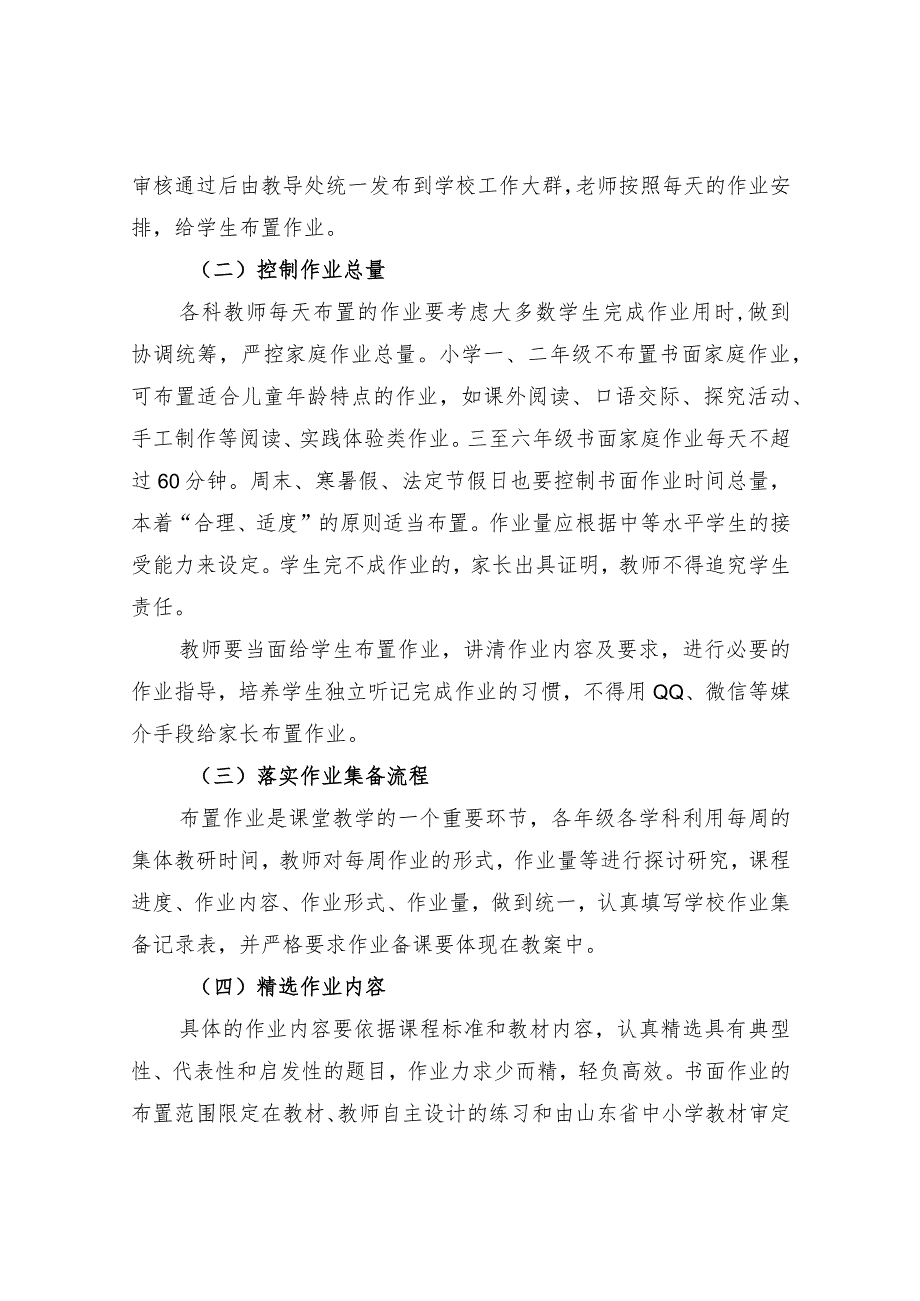 审核通过后由教导处统一发布到学校工作大群,老师按照每天的作业安
排，给学生布置作业。
（二）控制作业总量
各科教师每天布置的作业要考虑大多数学生完成作业用时,做到
协调统筹，严控家庭作业总量。小学一、二年级不布置书面家庭作业，
可布置适合儿童年龄特点的作业，如课外阅读、口语交际、探究活动、
手工制作等阅读、实践体验类作业。三至六年级书面家庭作业每天不超
过60分钟。周末、寒暑假、法定节假日也要控制书面作业时间总量，
本着“合理、适度”的原则适当布置。作业量应根据中等水平学生的接
受能力来设定。学生完不成作业的，家长出具证明，教师不得追究学生
责任。
教师要当面给学生布置作业，讲清作业内容及要求，进行必要的
作业指导，培养学生独立听记完成作业的习惯，不得用QQ、微信等媒
介手段给家长布置作业。
（三）落实作业集备流程
布置作业是课堂教学的一个重要环节，各年级各学科利用每周的
集体教研时间，教师对每周作业的形式，作业量等进行探讨研究，课程
进度、作业内容、作业形式、作业量，做到统一，认真填写学校作业集
备记录表，并严格要求作业备课要体现在教案中。
（四）精选作业内容
具体的作业内容要依据课程标准和教材内容，认真精选具有典型
性、代表性和启发性的题目，作业力求少而精，轻负高效。书面作业的
布置范围限定在教材、教师自主设计的练习和由山东省中小学教材审定